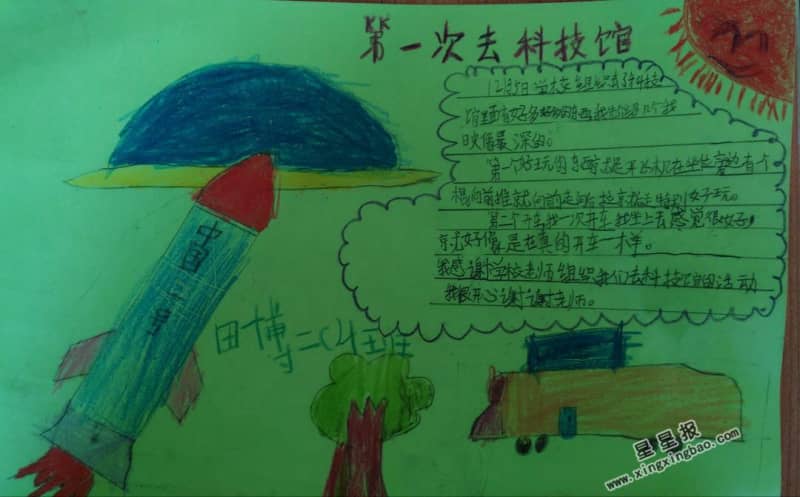 KK
第一次去科技馆
12月5日学校组织去科技
馆里面有好多好玩的东西我给你们介绍几个我
印像最深的。
第一个好玩的东西就是开飞机在坐位旁边有个
棍向前推就向前走向后拉就向后走特别好玩。
第二个开车我一次开车我坐上去感觉很好
方式好像是在真的开车一样。
我感谢学校老师组织我们去科技馆的活动
我很开心谢谢老师。
中国一号
田博二(4)班
星星报
www.xingxingbao.com